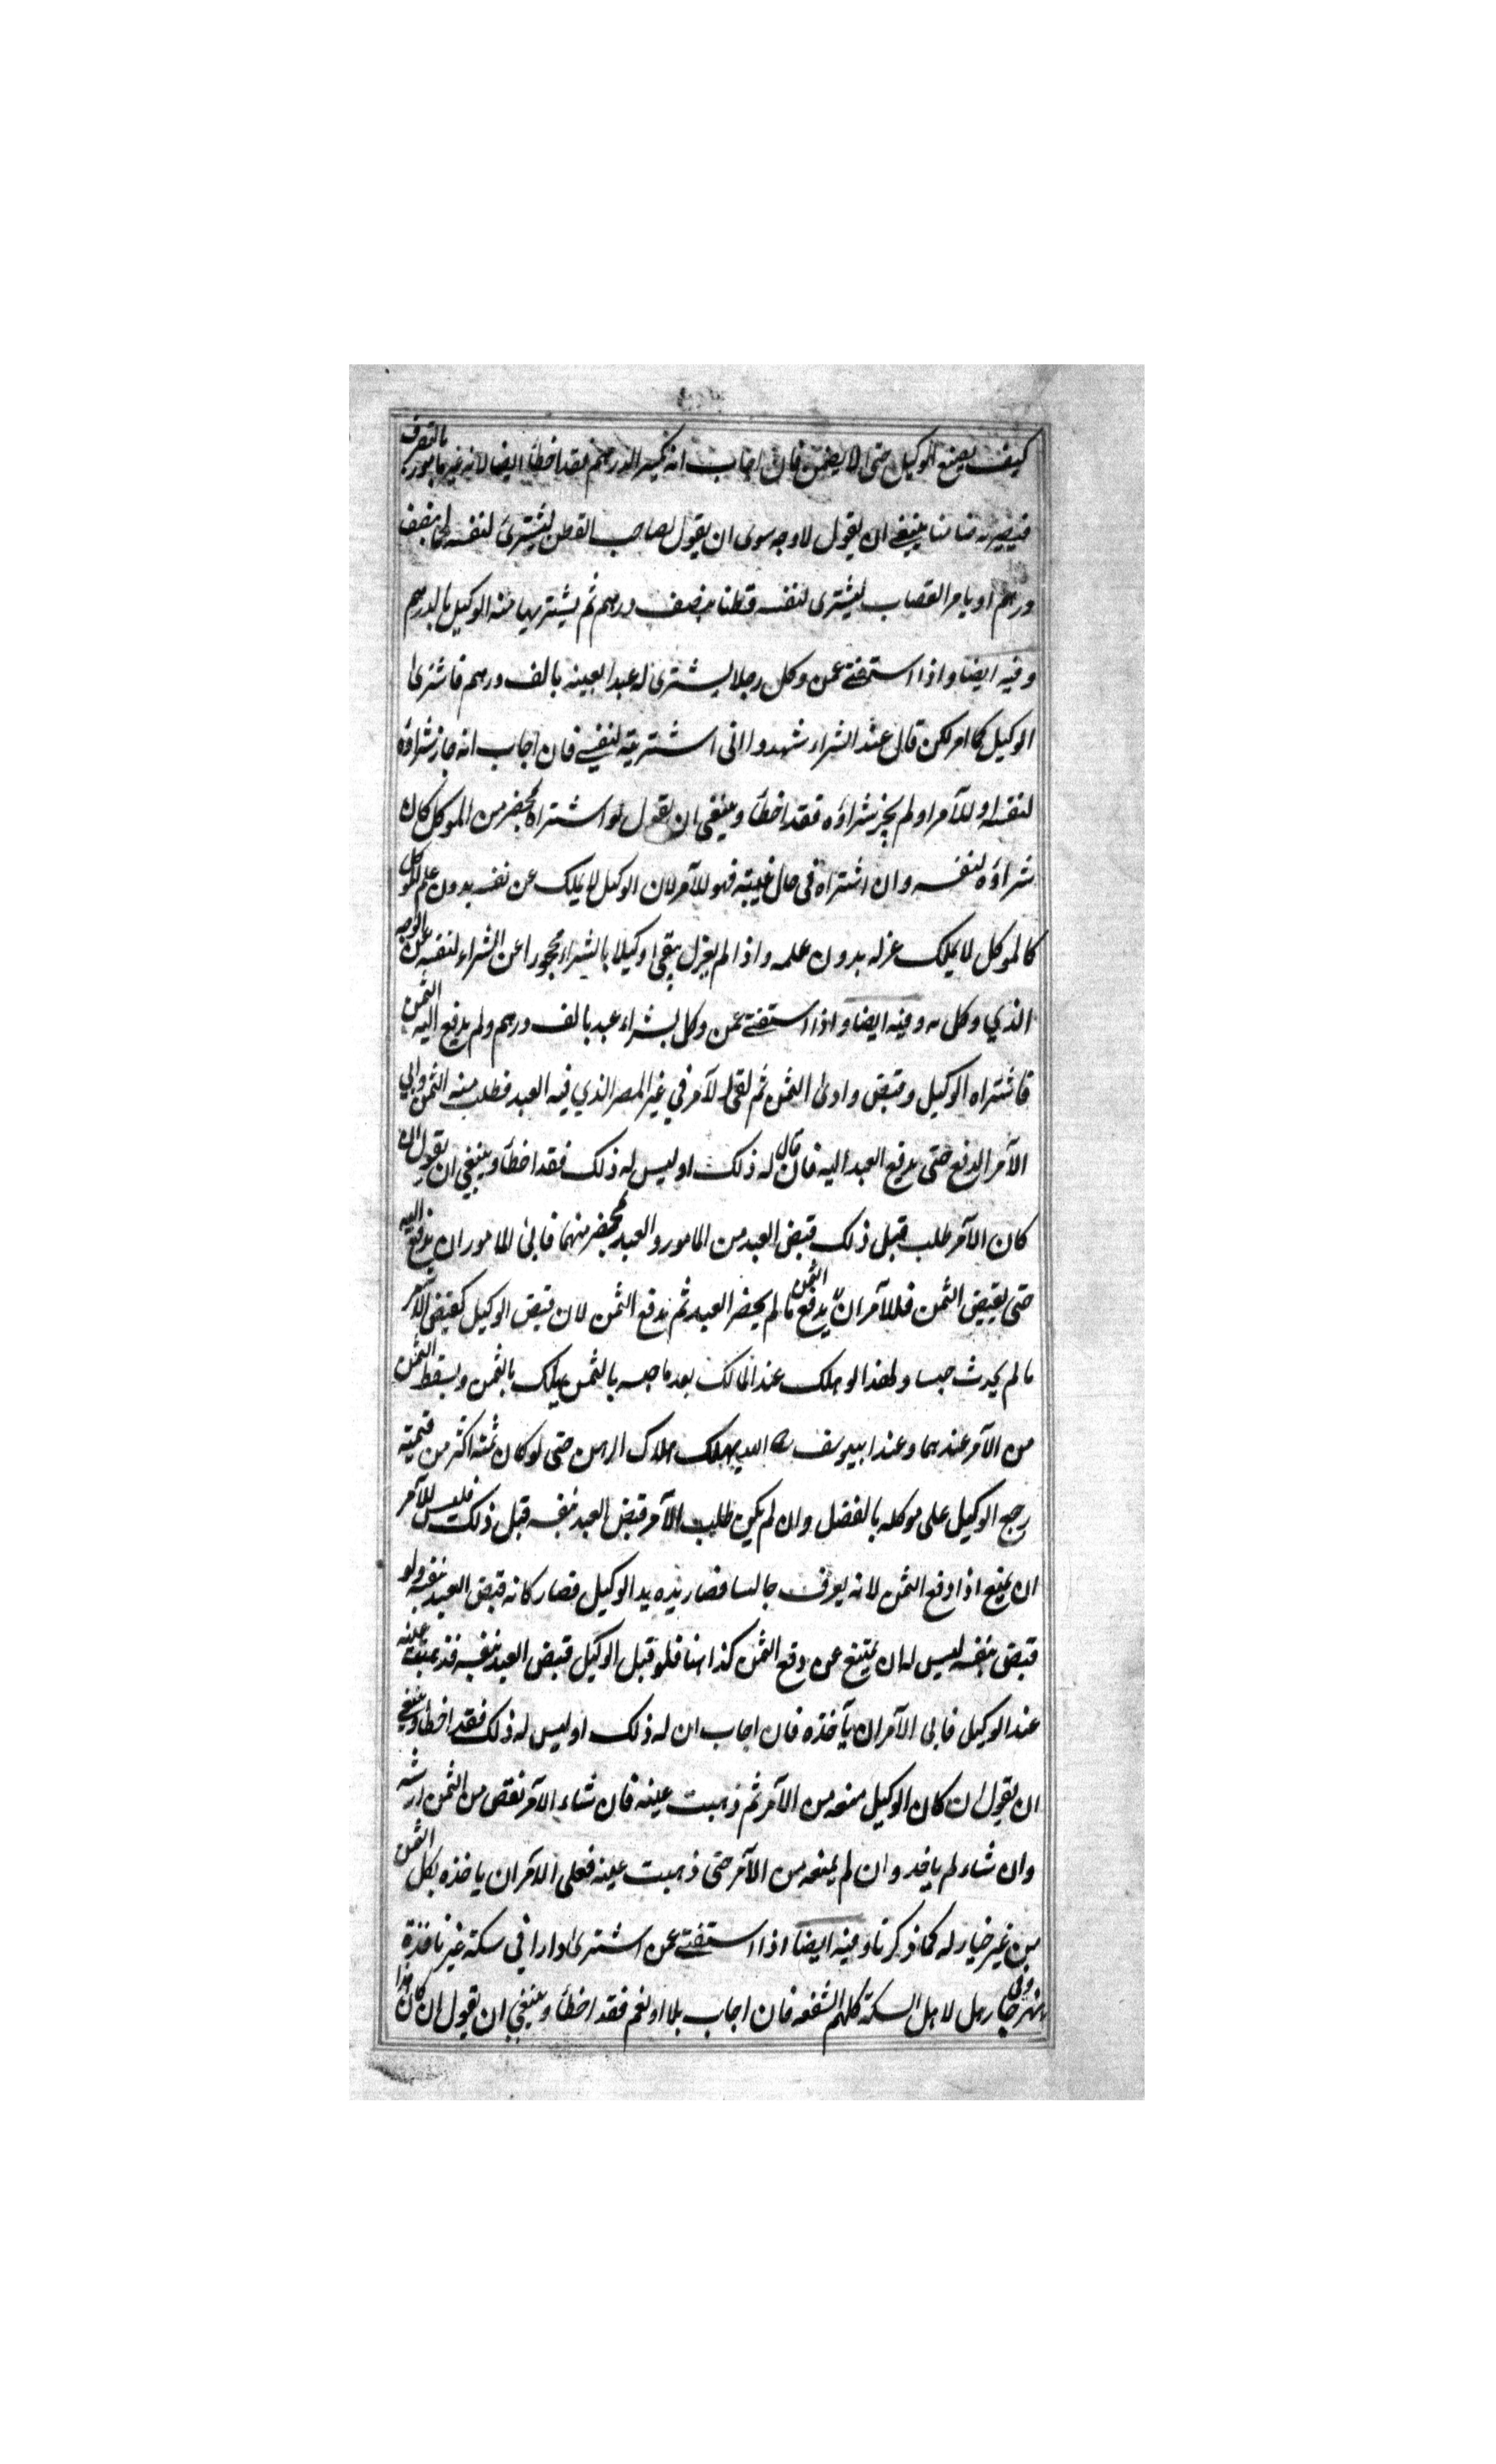 كيف يصنع الوكيل حتى لا يضمن فان اجاب انه يكسر الدرهم فقد اخطأ ايضا لانه غير مامور بالتصرف
فيصير به ضامنا ينبغي ان يقول لا وجه سوى ان يقول لصاحب القطن ليشترى لنفسه لحما بنصف
درهم او يامر القصاب ليشترى لنفسه قطنا بنصف درهم ثم يشتريها منه الوكيل بالدرهم
وفيه ايضا واذا استفتى عمن وكل رجلا ليشترى له عبدا بعينه بالف درهم فاشترى
الوكيل كما امر لكن قال عند الشراء شهدوا انى اشتريته لنفسي فان اجاب انه جاز شراؤه
لنفسه او للآمر او لم يجز شراؤه فقد اخطأ وينبغى ان يقول لو اشتراه بمحضر من الموكل كان
شراؤه لنفسه وان اشتراه في حال غيبته فهو للآمر لان الوكيل لا يملك عن نفسه بدون علم الموكل
كالموكل لا يملك عزله بدون علمه واذا لم يعزل يبقى وكيلا بالشراء محجورا عن الشراء لنفسه على الوجه
الذي وكل به وفيه ايضا واذا استفتى عمن وكل بشراء عبد بالف درهم ولم يدفع اليه الثمن
فاشتراه الوكيل وقبض وادى الثمن ثم لقى الآمر في غير المصر الذي فيه العبد فطلب منه الثمن وابى
الآمر الدفع حتى يدفع العبد اليه فان قال له ذلك او ليس له ذلك فقد اخطأ وينبغي ان يقول ان
كان الآمر طلب قبل ذلك قبض العبد من المامور والعبد بمحضر منهما فابى المامور ان يدفع اليه
حتى يقبض الثمن فللآمر ان لا يدفع الثمن ما لم يحضر العبد ثم يدفع الثمن لان قبض الوكيل كقبض الآمر
ما لم يحدث حبسا ولهذا لو هلك عند المالك بعد ما حبسه بالثمن يهلك بالثمن ويسقط الثمن
من الآمر عندهما وعند ابيوسف رح الله يهلك هلاك الرهن حتى لو كان ثمنه اكثر من قيمته
رجع الوكيل على موكله بالفضل وان لم يكن طلب الآمر قبض العبد بنفسه قبل ذلك فليس للآمر
ان يمنع اذا دفع الثمن لانه يعرف حابسا فصار يده يد الوكيل فصار كانه قبض العبد بنفسه ولو
قبض بنفسه ليس له ان يمتنع عن دفع الثمن كذا هنا فلو قبل الوكيل قبض العبد بنفسه فذهبت عينه
عند الوكيل فابى الآمر ان يآخذه فان اجاب ان له ذلك او ليس له ذلك فقد اخطأ وينبغي
ان يقول ان كان الوكيل منعه من الآمر ثم ذهبت عينه فان شاء الآمر نقص من الثمن ارشه
وان شاء لم ياخذ وان لم يمنعه من الآمر حتى ذهبت عينه فعلى الآمر ان ياخذه بكل الثمن
من غير خيار له كما ذكرنا وفيه ايضا اذا استفتى عمن اشترى دارا في سكة غير نافذة
نهر جار هل لاهل السكة كلهم الشفعه فان اجاب بلا او نعم فقد اخطأ وينبغي ان يقول ان كان هذا